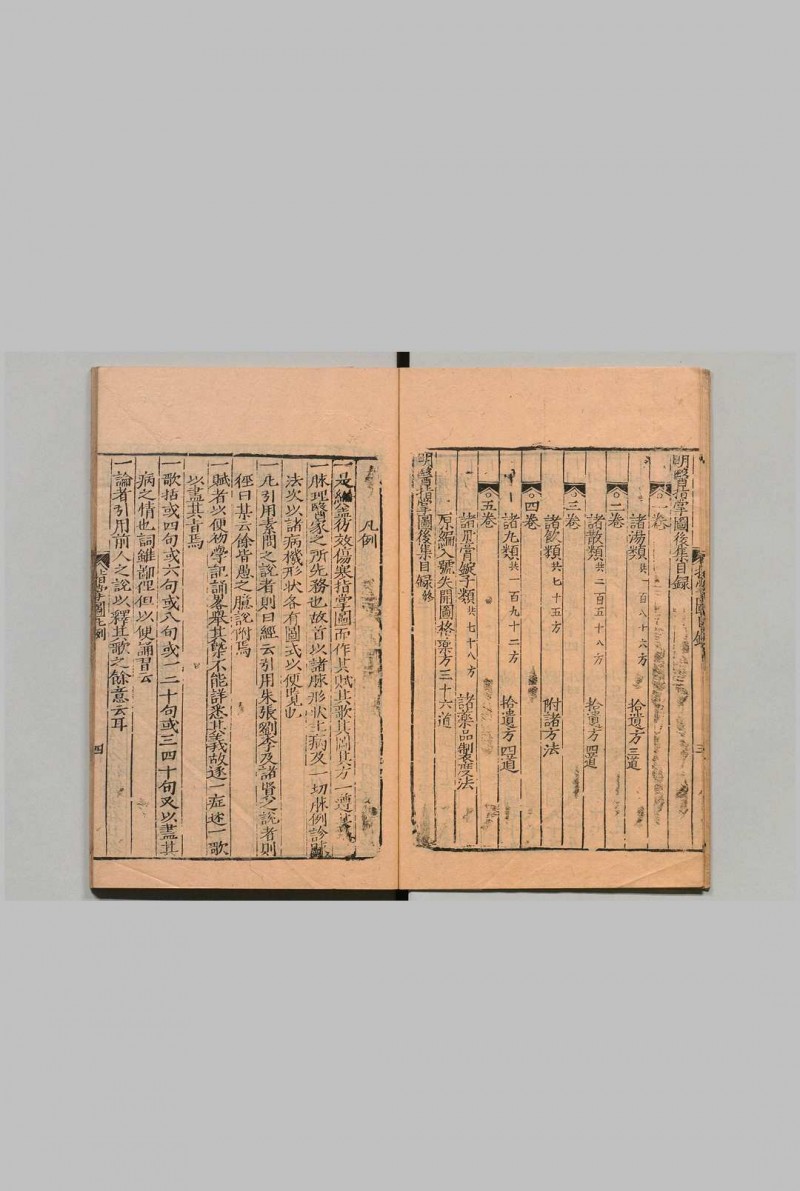 明醫指掌圖後集目錄
一卷
諸湯類共一百八十六方 拾遺方三道
二卷
諸散類共二百五十八方 拾遺方四道
三卷
諸飲類共七十五方 附諸方法
四卷
諸丸類共一百九十二方 拾遺方四道
五卷
諸丹膏錠子類共七十八方 諸藥品製度法
原編入號矢開圖格藥方三十六道
明醫指掌圖後集目錄終
凡例
一是編蓋彷效傷寒指掌圖而作其賦其歌其圖其方一遵
一脉理醫家之所先務也故首以諸脉形狀主病及一切脉例診
法次以諸病機形狀各有圖式以便覽也
一凡引用素問之說者則曰經云引用朱張劉李及諸賢之說者則
徑曰某云餘皆愚之臆說附焉
一賦者以便初學記誦畧舉其槩不能詳悉其義故逐一症述一歌
以盡其旨焉
一歌括或四句或六句或八句或一二十句或三四十句又以盡其
病之情也詞雖鄙俚但以便誦習云
一論者引用前人之說以釋其歌之餘意云耳
指掌圖凡例
四